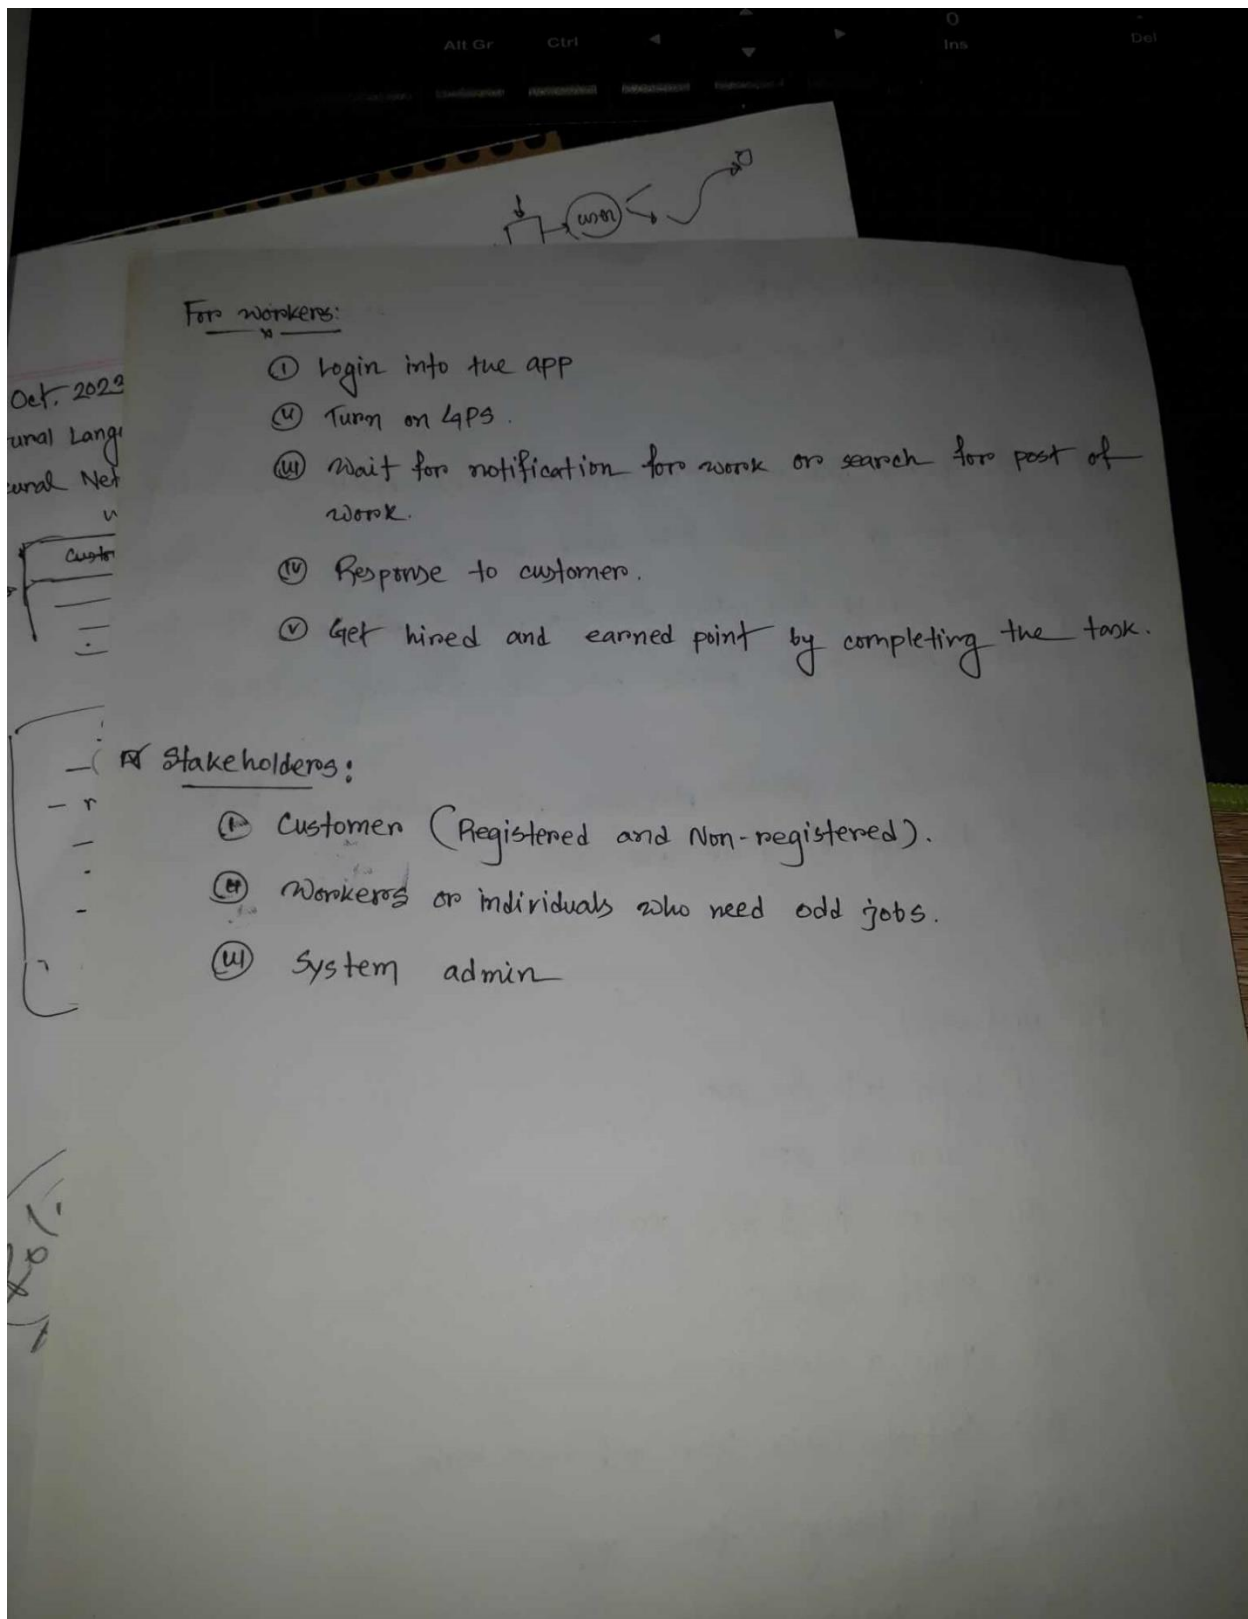 Alt Gr
Ctrl
0
Ins
Del
user
For workers:
(i) Login into the app
(ii) Turn on GPS.
(iii) Wait for notification for work or search for post of
work.
(iv) Response to customer.
(v) Get hired and earned point by completing the task.
Oct. 2023
ural Lang
eural Net
Custo
Stakeholders:
(i) Customer (Registered and Non-registered).
(ii) Workers or individuals who need odd jobs.
(iii) System admin